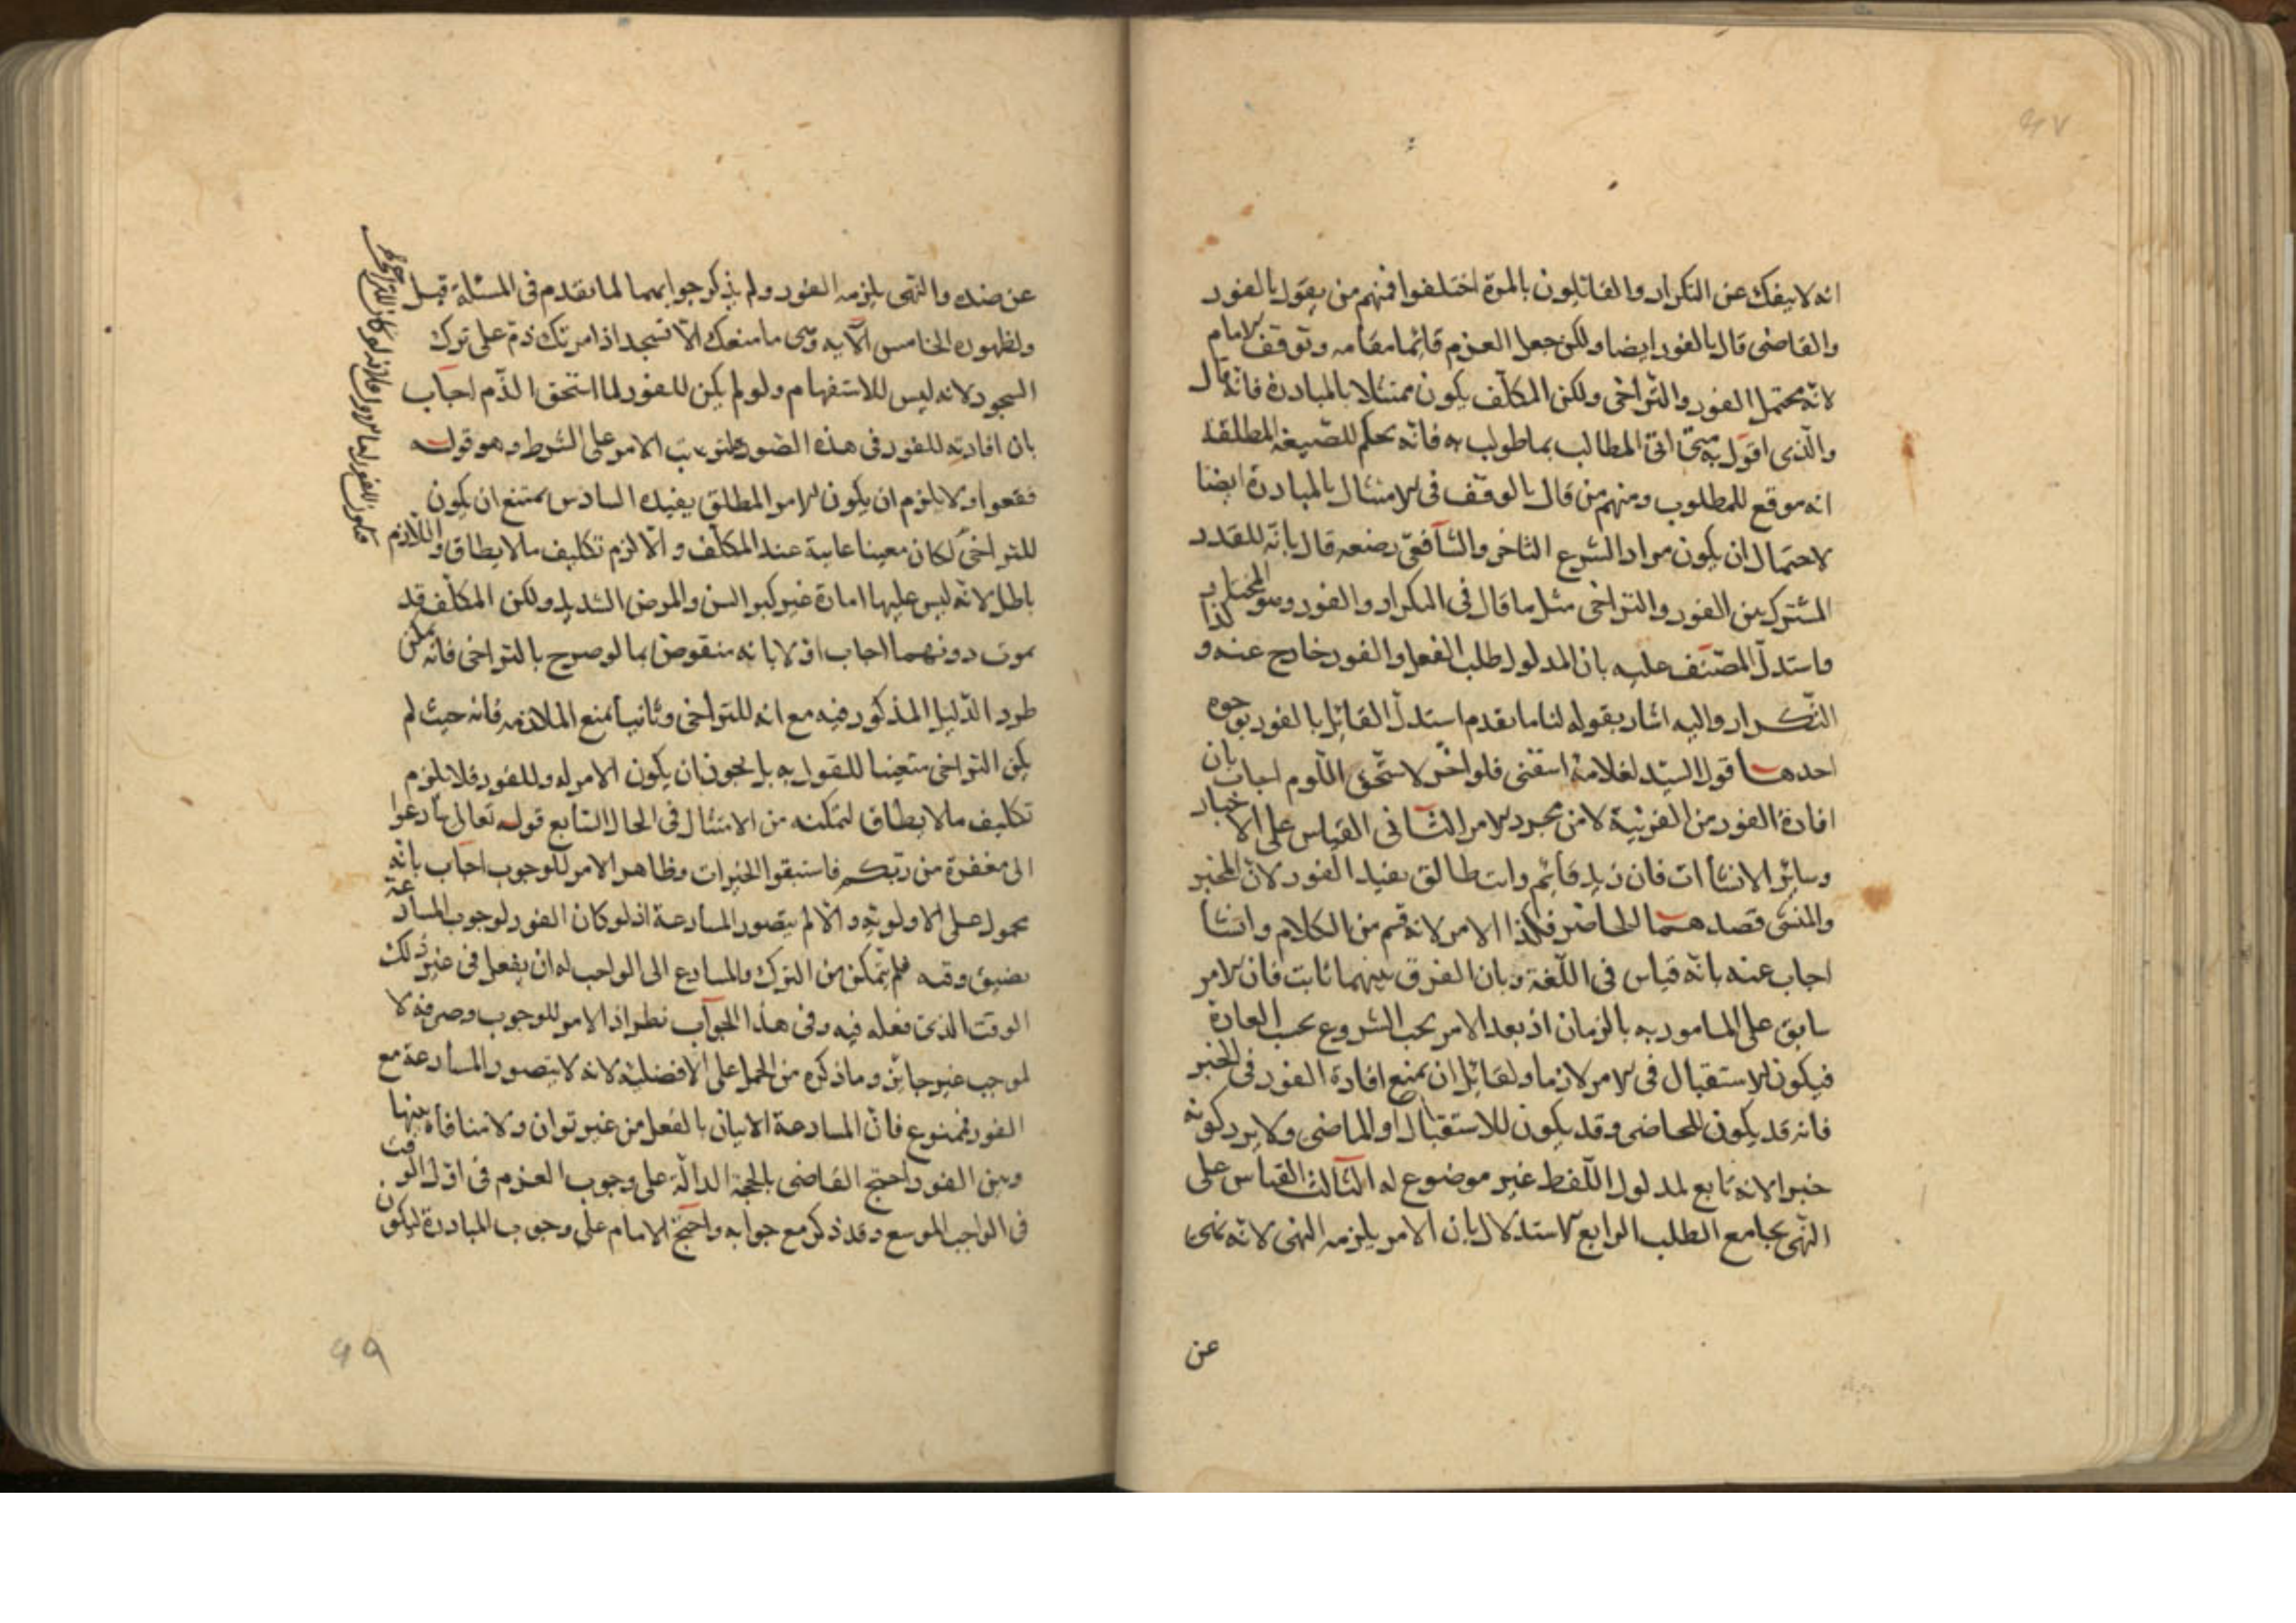 انه لا ينفك عن التكرار والقائلون بالمرة اختلفوا فمنهم من يقول بالفور
والقاضى قال بالفور ايضا ولكن جعل العزم قائما مقامه وتوقف الامام
لانه يحتمل الفور والتراخى ولكن المكلف يكون ممتثلا بالمبادرة فانه قال
والذى اقول به حتى ان المطالب بما طولب به فانه بحكم للصيغة المطلقة
انه موقع للمطلوب ومنهم من قال بالوقف فى الامتثال بالمبادرة ايضا
لاحتمال ان يكون مراد الشرع التاخر والشافعى قال بانه للقدر
المشترك بين الفور والتراخى مثل ما قال فى التكرار والفور وهو المختار وكذا
واستدل المصنف عليه بان المدلول طلب الفعل والفور خارج عنه و
التكرار واليه اشار بقوله لنا ما تقدم استدل القائل بالفور بوجوه
احدها قول السيد لغلامه اسقنى فلو اخر لاستحق اللوم اجاب بان
افادة الفور من القرينة لا من مجرد الامر الثانى القياس على الاخبار
وسائر الانشاات فان زيد قائم وانت طالق يفيد الفور لان المخبر
والمنشى قصدهما الحاضر فكذا الامر لانه قسم من الكلام وانشا
اجاب عنه بانه قياس فى اللغة وبان الفرق بينهما ثابت فان الامر
سابق على المامور به بالزمان اذ بعد الامر يجب الشروع بحسب العادة
فيكون الاستقبال فى الامر لازما ولقائل ان يمنع افادة الفور فى الخبر
فانه قد يكون للحاضر وقد يكون للاستقبال او الماضى ولا يرد كونه
خبرا لانه تابع لمدلول اللفظ غير موضوع له الثالث القياس على
النهى بجامع الطلب الرابع الاستدلال بان الامر يلزمه النهى لانه نهى
عن
عن ضده والنهى يلزمه الفور ولم يذكر جوابهما لما تقدم فى المسئلة قبل
ولظهوره الخامس الآية وهى ما منعك الا تسجد اذ امرتك ذم على ترك
السجود لانه ليس للاستفهام ولو لم يكن للفور لما استحق الذم اجاب
بان افادته للفور فى هذه الصورة لترتب الامر على الشرط وهو قوله
فقعوا ولا يلزم ان يكون الامر المطلق يفيده السادس يمتنع ان يكون
للتراخى لكان معينا غايته عند المكلف والا لزم تكليف ما لا يطاق واللازم
باطل لانه ليس عليها امارة غير كبر السن والمرض الشديد ولكن المكلف قد
يموت دونهما اجاب اولا بانه منقوض بما لو صرح بالتراخى فانه يمكن
طرد الدليل المذكور فيه مع انه للتراخى وثانيا بمنع الملازمة فانه حيث لم
يكن التراخى متعينا للقول به بل يجوز ان يكون الامر له وللفور فلا يلزم
تكليف ما لا يطاق لتمكنه من الامتثال فى الحال السابع قوله تعالى سارعوا
الى مغفرة من ربكم فاستبقوا الخيرات وظاهر الامر للوجوب اجاب بانه
محمول على الاولوية والا لم يتصور المسارعة اذ لو كان الفور لوجوب المسارعة
يضيق وقته فلم يتمكن من الترك والمسارع الى الواجب له ان يفعل فى غير ذلك
الوقت الذى فعله فيه وفى هذا الجواب نظر اذ الامر للوجوب وصرفه لا
لموجب غير جائز وما ذكره من الحمل على الافضلية لانه لا يتصور المسارعة مع
الفور فممنوع فان المسارعة الاتيان بالفعل من غير توان ولا منافاة بينها
وبين الفور احتج القاضى بالحجة الدالة على وجوب العزم فى اول الوقت
فى الواجب الموسع وقد ذكر مع جوابه واحتج الامام على وجوب المبادرة ليكون